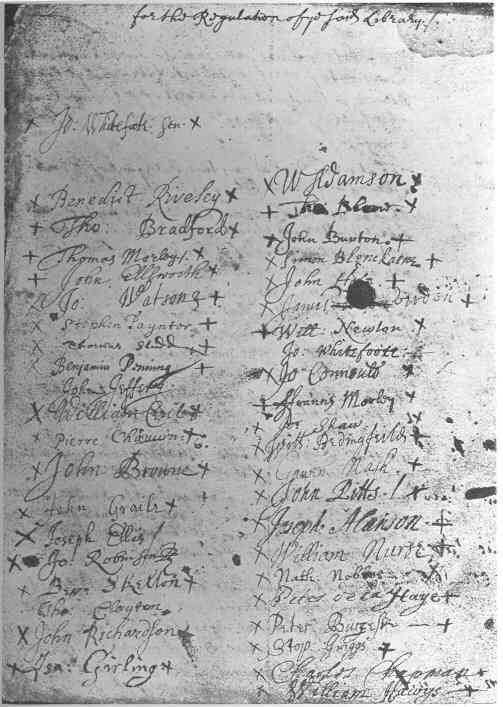 for the Regulation of ye said Library.
Jo. Whitefoote Sen.
Benedict Riveley
Tho: Bradford
Thomas Morley
John Ellsworth
Jo: Watson
Stephen Paynter
Thomas Studd
Benjamin Penning
John Jeffery
William
Pierre Chauvin
John Browne
John Graile
Joseph Ellis
Jo: Robinson
Benj. Skelton
Tho: Clayton
John Richardson
Isa: Girling
W Adamson
Tho Blome
John Burton
Simon Blenckarne
John
James
Will: Newton
Jo: Whitefoote
Jo Connould
Francis Morley
Jo: Shaw
Bedingfeild
Gawen Nash
John Pitts
Joseph Alanson
William Nurse
Nath Nobbs
Peter de la Haye
Peter Burgess
Stop Griggs
Charles Chapman
William Hawys